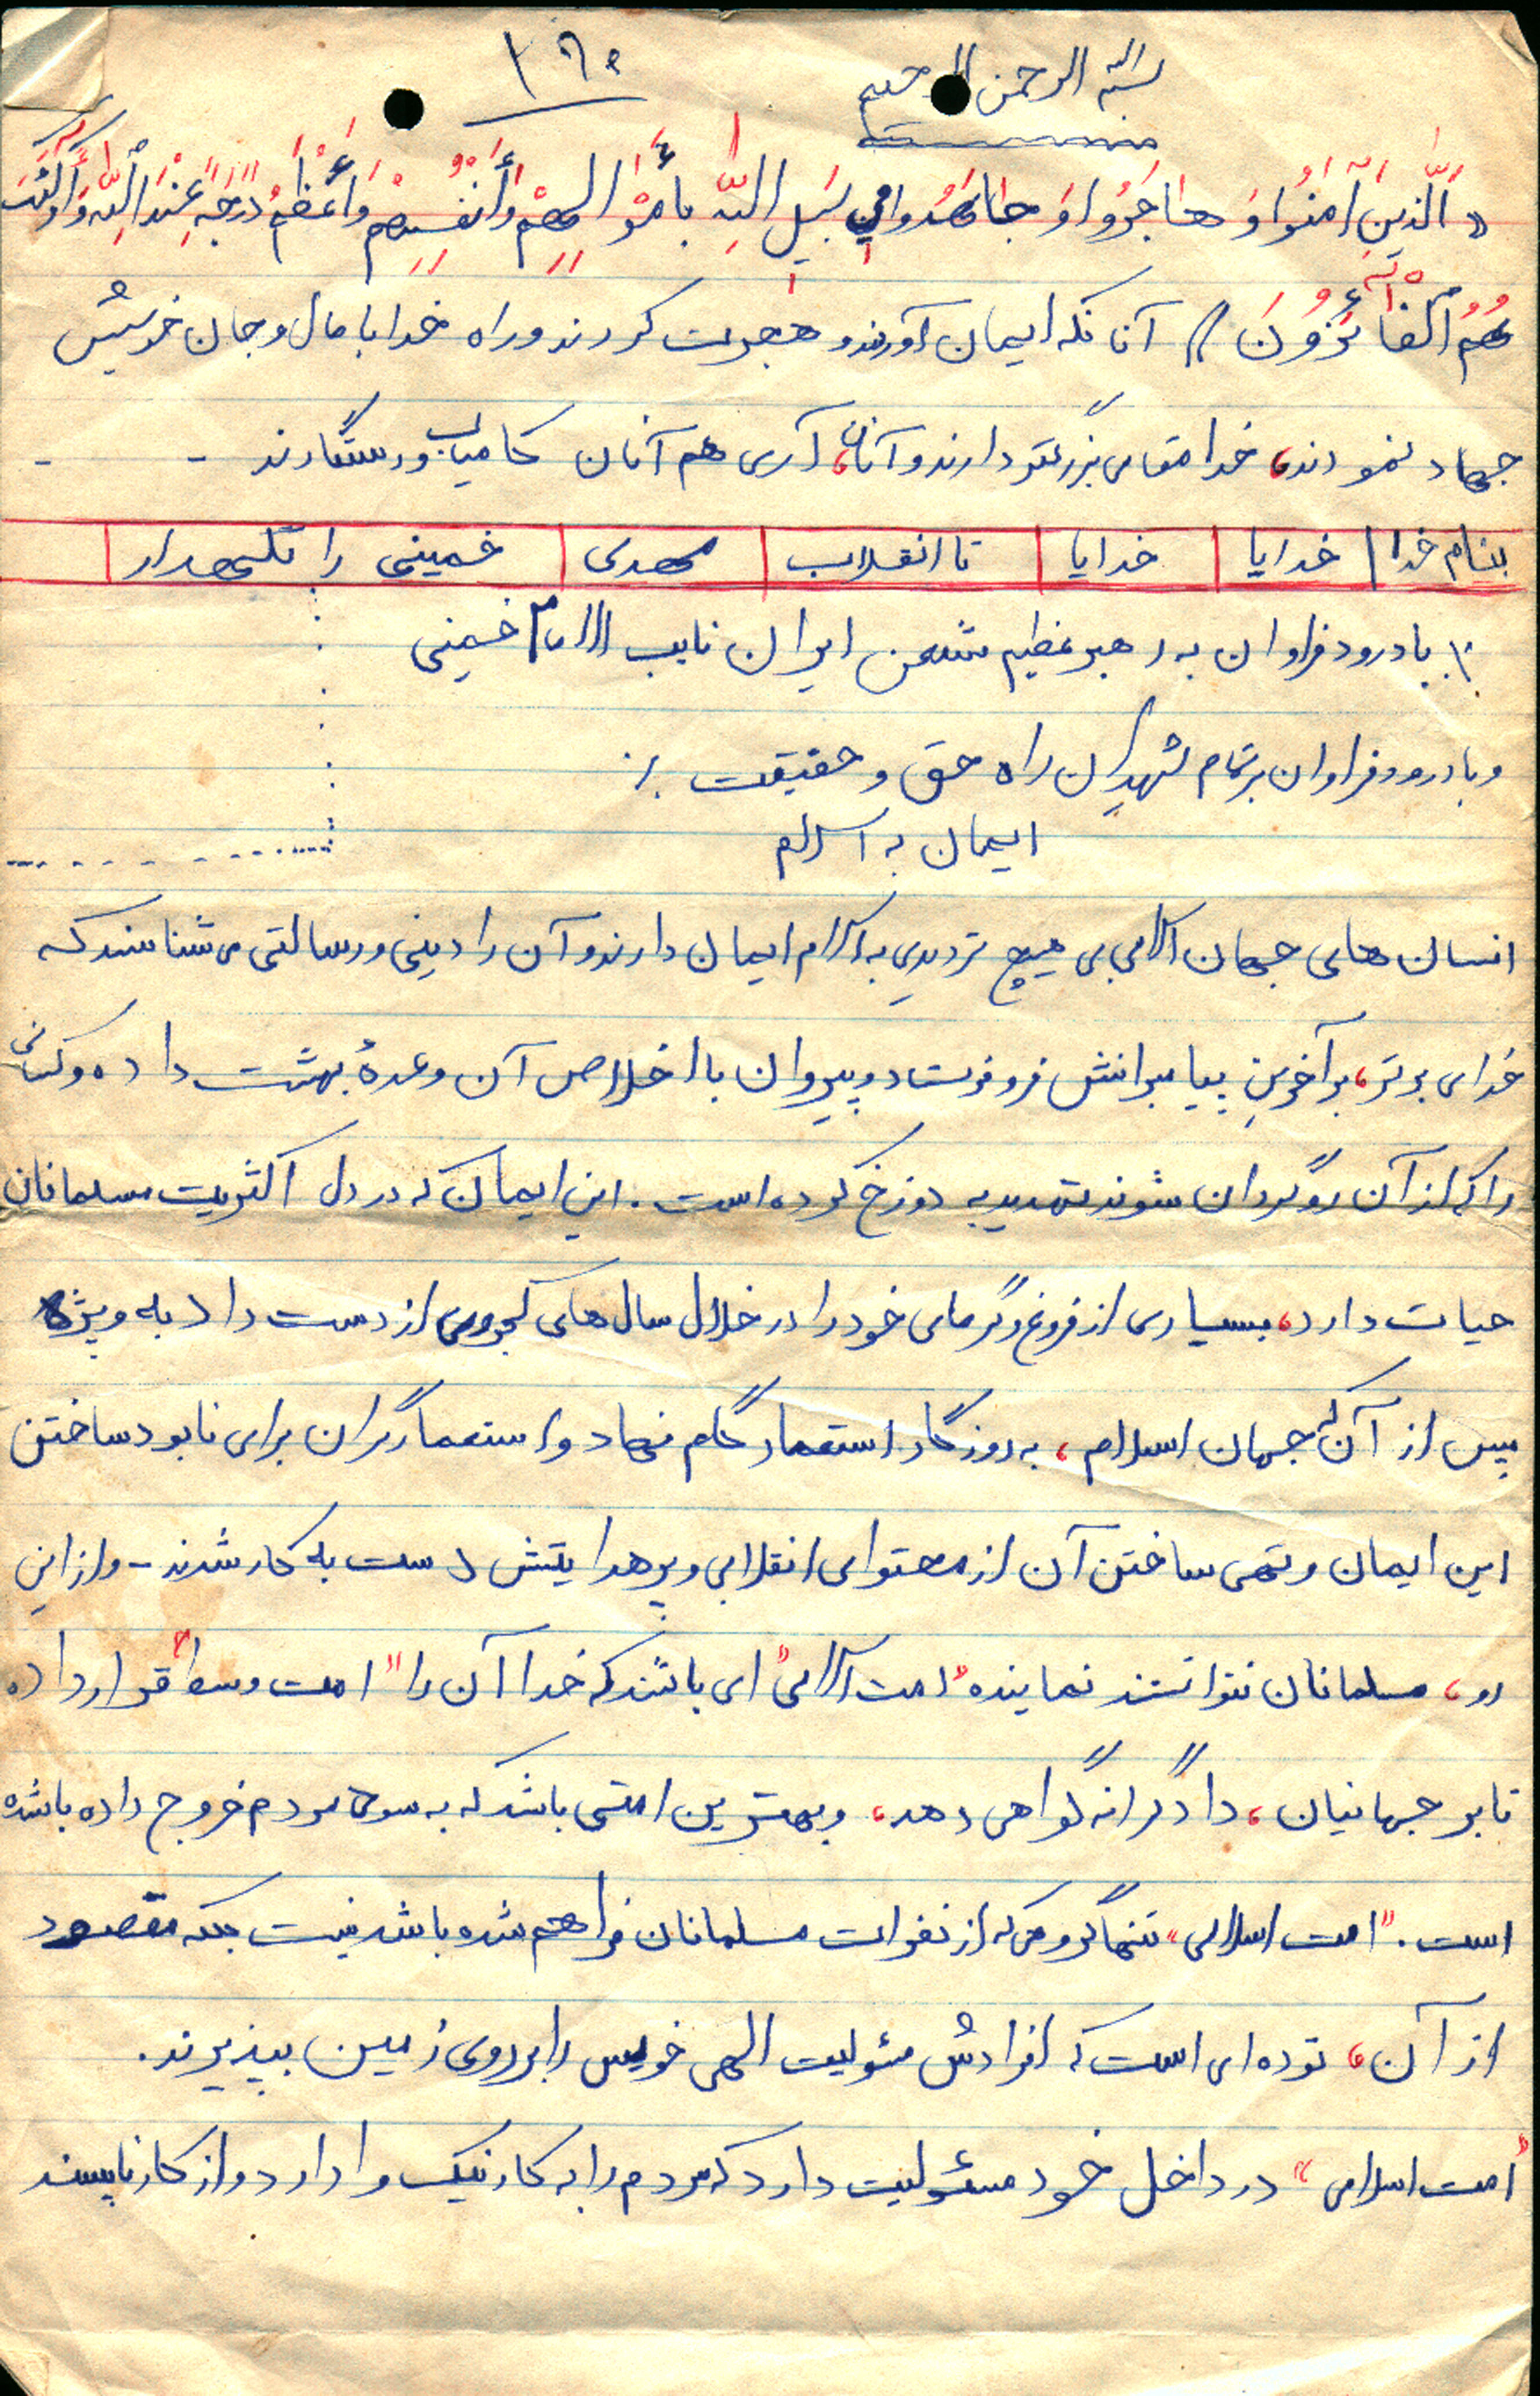 بسم الله الرحمن الرحیم
«اَلَّذینَ آمَنُوا وَ هاجَرُوا وَ جاهَدُوا فی سَبیلِ اللّهِ بِأَمْوالِهِمْ وَ أَنْفُسِهِمْ أَعْظَمُ دَرَجَةً عِنْدَ اللّهِ وَ أُولئِکَ
هُمُ الْفائِزُونَ» آنانکه ایمان آوردند و هجرت کردند و راه خدا با مال و جان خویش
جهاد نمودند، خدا مقامی بزرگتر دارند و آنان، آری هم آنان کامیاب و رستگارند - -
بنام خدا | خدایا | خدایا | تا انقلاب | مهدی | خمینی را نگهدار
با درود فراوان به رهبر عظیم ایران نایب الامام خمینی
و با درود فراوان بر تمام شهیدان راه حق و حقیقت
ایمان به اسلام
انسان های جهان اسلامی بی هیچ تردیدی به اسلام ایمان دارند و آن را دینی و رسالتی می شناسند که
خدای برتر، بر آخرین پیامبرانش فرو فرستاد و پیروان با اخلاص آن وعدهٔ بهشت داده و کسانی
را که از آن روگردان شوند تهدید به دوزخ کرده است. این ایمان که در دل اکثریت مسلمانان
حیات دارد، بسیاری از فروغ و گرمای خود را در خلال سال های کجروی از دست داد به ویژه
پس از آن که جهان اسلام، به روزگار استعمار گام نهاد و استعمارگران برای نابود ساختن
این ایمان و تهی ساختن آن از محتوای انقلابی و پر هدایتش دست به کار شدند - و از این
رو، مسلمانان نتوانستند نماینده "امت اسلامی" ای باشند که خدا آن را "امت وسط" قرار داده
تا بر جهانیان، دادگرانه گواهی دهد، و بهترین امتی باشد که به سوی مردم خروج داده باشده
است. "امت اسلامی" تنها گروهی که از نفرات مسلمانان فراهم شده باشد نیست بلکه مقصود
از آن، توده ای است که افرادش مسئولیت الهی خویش را بر روی زمین بپذیرند.
"امت اسلامی" در داخل خود مسئولیت دارد که مردم را به کار نیک وادارد و از کار ناپسند